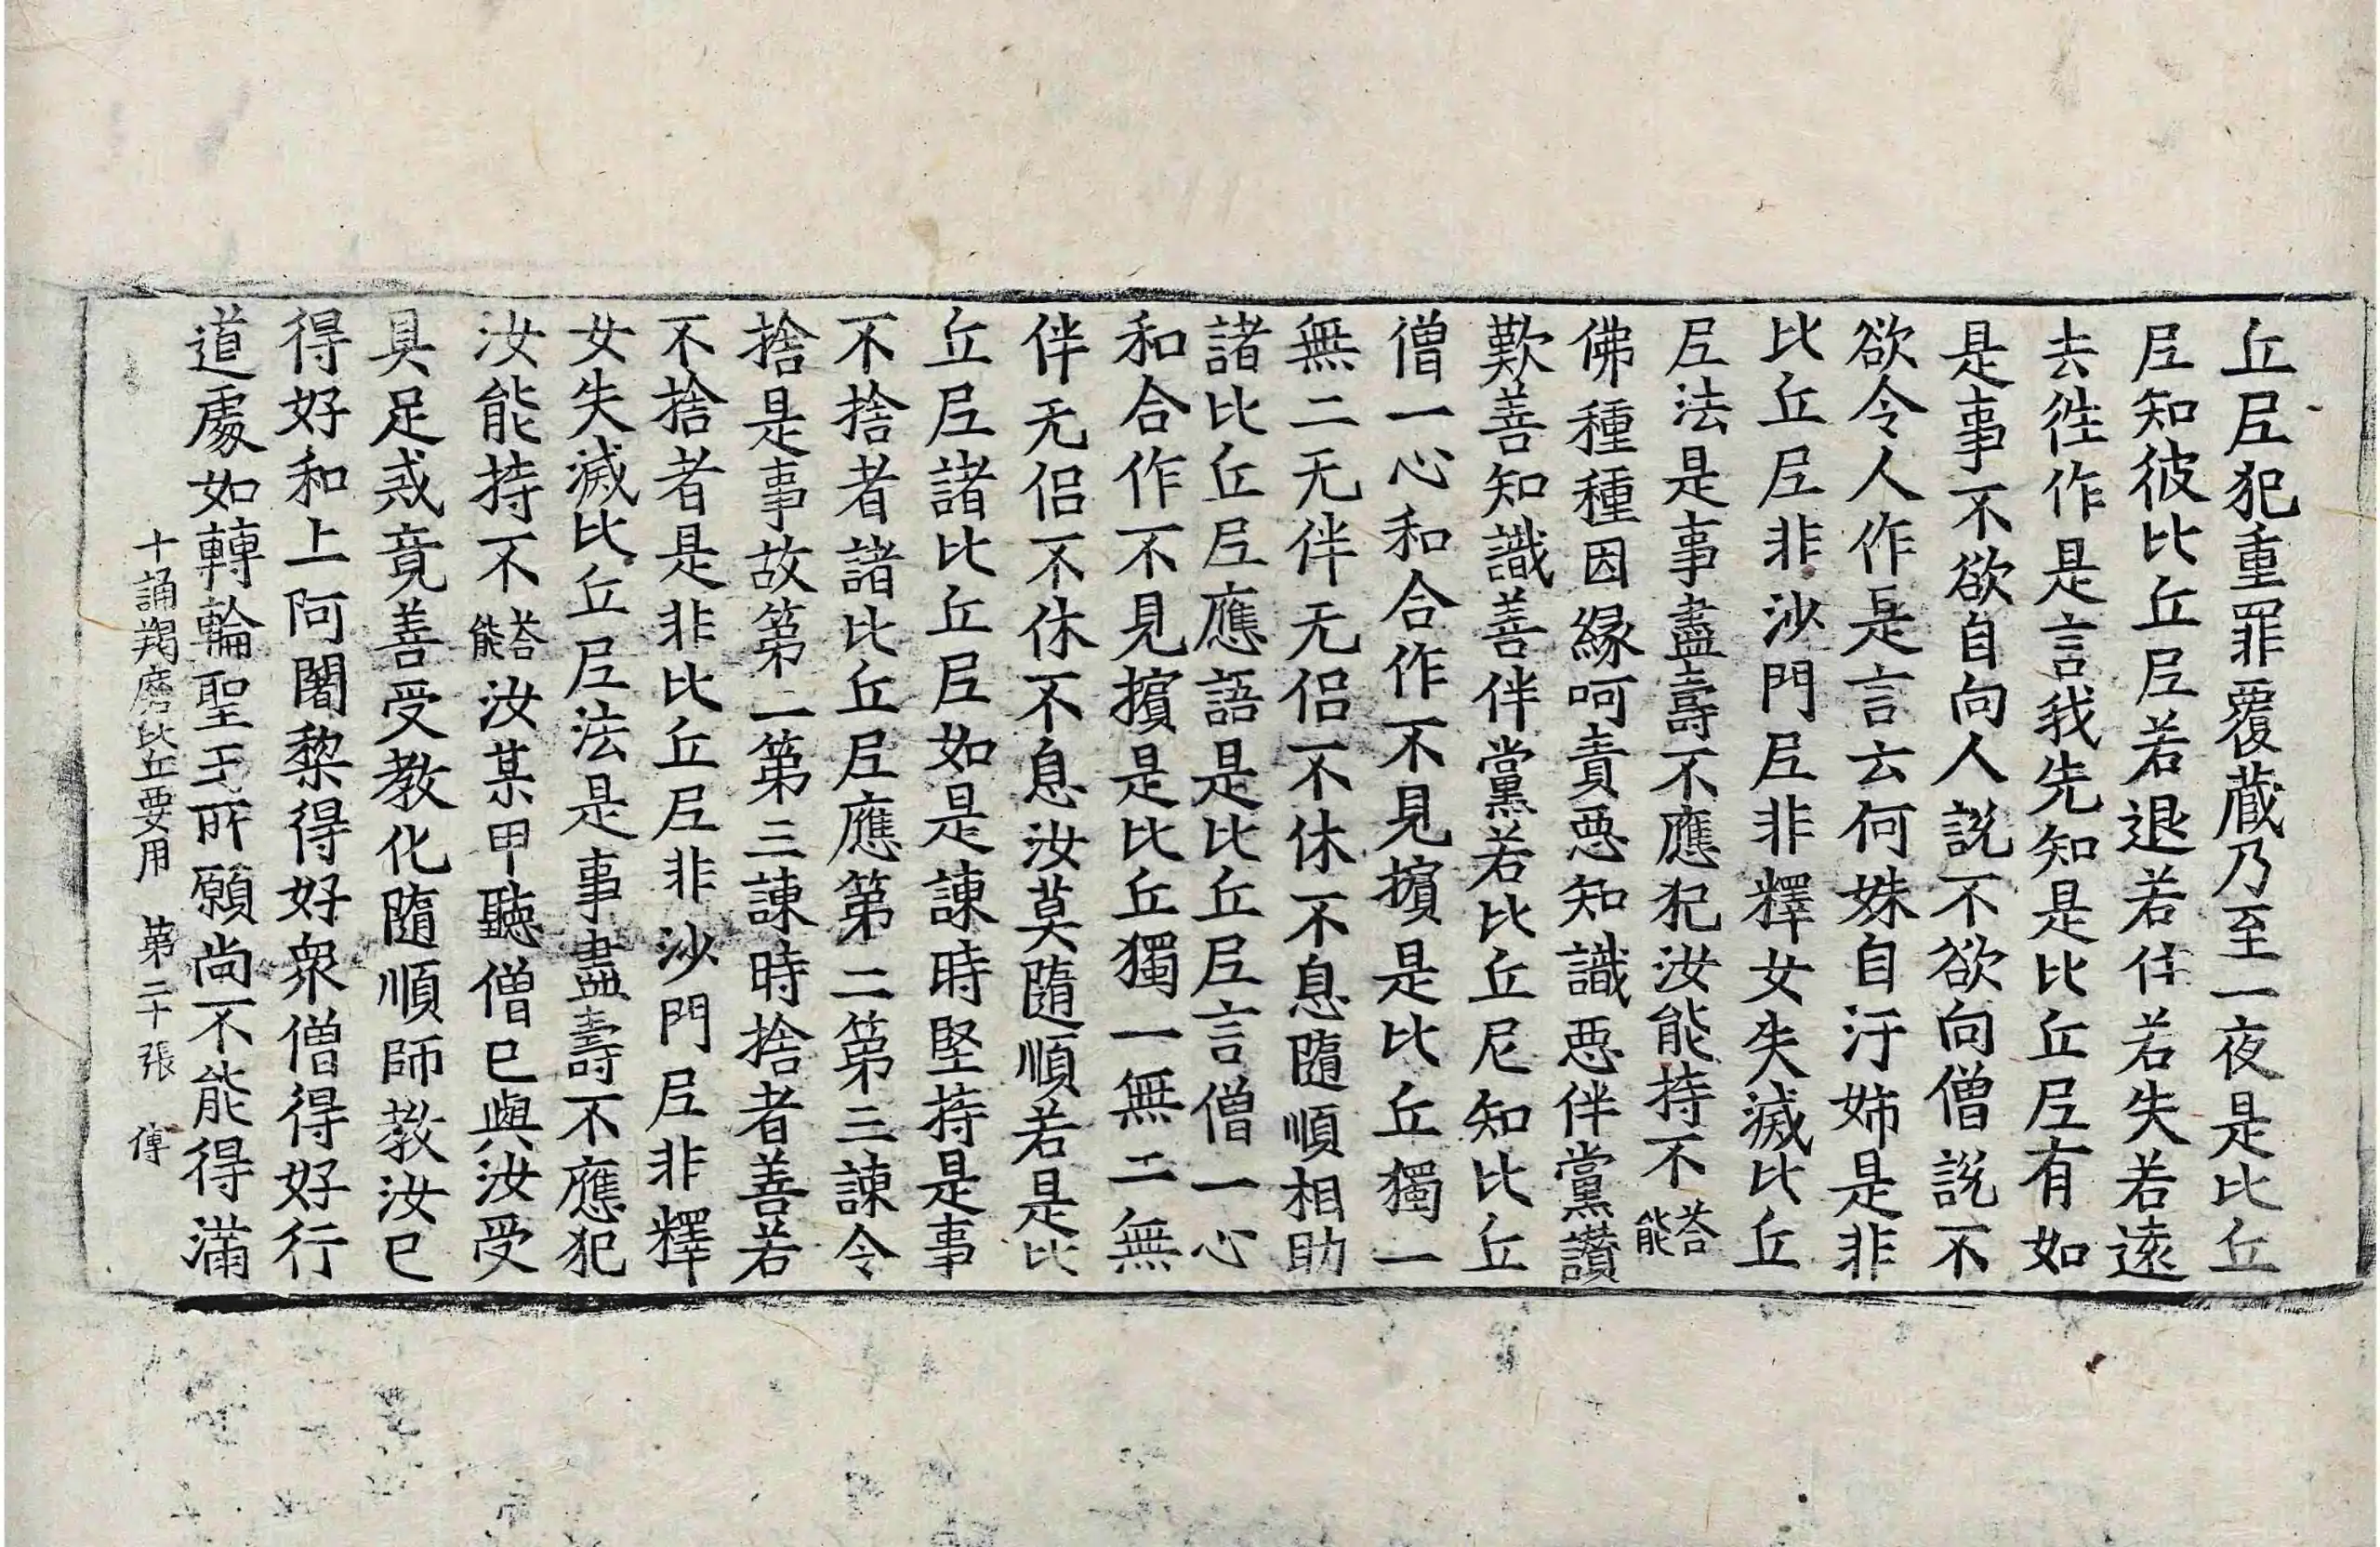 丘尼犯重罪覆藏乃至一夜是比丘
尼知彼比丘尼若退若住若失若遠
去後作是言我先知是比丘尼有如
是事不欲自向人說不欲向僧說不
欲令人作是言云何姝自汙姉是非
比丘尼非沙門尼非釋女失滅比丘
尼法是事盡壽不應犯汝能持不荅能
佛種種因緣呵責惡知識惡伴黨讃
歎善知識善伴黨若比丘尼知比丘
僧一心和合作不見擯是比丘獨一
無二无伴无侣不休不息隨順相助
諸比丘尼應語是比丘尼言僧一心
和合作不見擯是比丘獨一無二無
伴无侣不休不息汝莫隨順若是比
丘尼諸比丘尼如是諫時堅持是事
不捨者諸比丘尼應第二第三諫令
捨是事故第二第三諫時捨者善若
不捨者是非比丘尼非沙門尼非釋
女失滅比丘尼法是事盡壽不應犯
汝能持不荅能汝某甲聽僧已與汝受
具足戒竟善受教化隨順師教汝已
得好和上阿闍黎得好衆僧得好行
道處如轉輪聖王所願尚不能得滿
十誦羯磨比丘要用 第二十張 傅